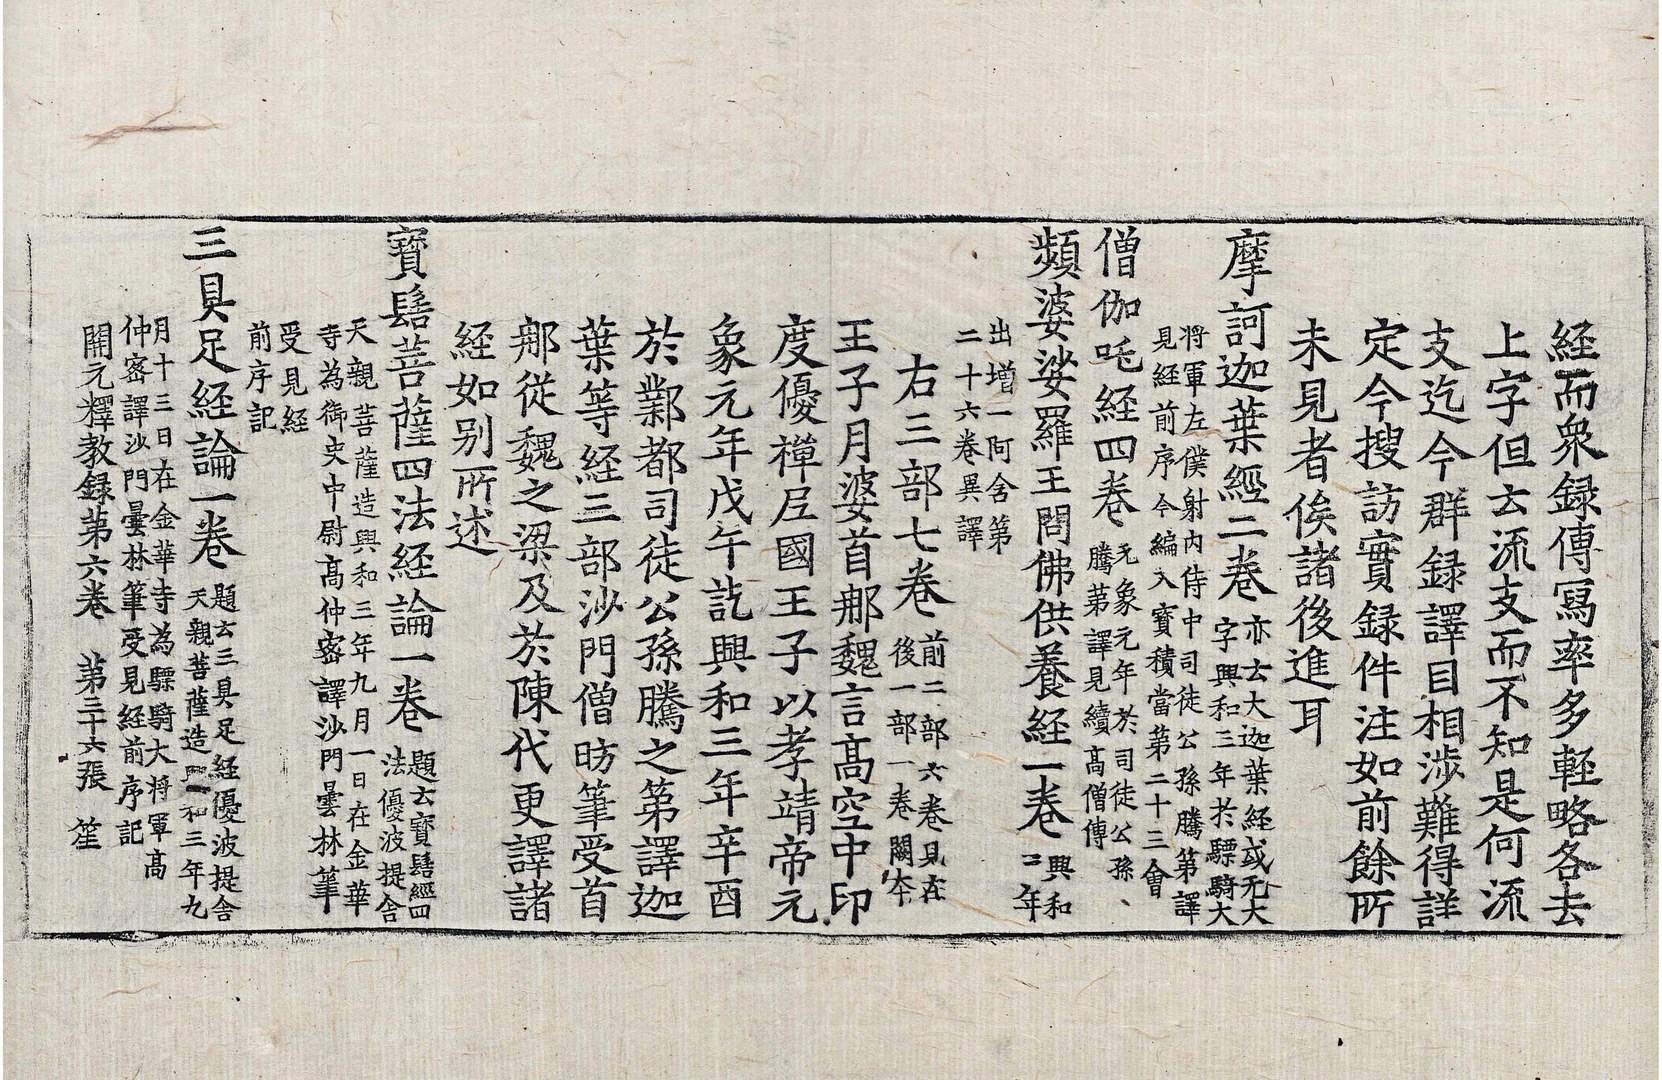 経而衆録傳寫率多軽略各去
上字但云流支而不知是何流
支迄今群録譯目相渉難得詳
定今搜訪實録件注如前餘所
未見者俟諸後進耳
摩訶迦葉經二巻亦云大迦葉経或无大
字興和三年於驃騎大
将軍左僕射内侍中司徒公孫騰第譯
見経前序今編入寶積當第二十三會
僧伽吒経四巻元象元年於司徒公孫
騰第譯見續髙僧傳
頻婆娑羅王問佛供養経一巻興和二年
出增一阿含第
二十六巻異譯
右三部七巻前二部六巻見在
後一部一巻闕本
王子月婆首那魏言髙空中印
度優禅尼國王子以孝靖帝元
象元年戊午訖興和三年辛酉
於鄴都司徒公孫騰之第譯迦
葉等経三部沙門僧昉筆受首
那従魏之梁及於陳代更譯諸
経如别所述
寳髻菩薩四法経論一巻題云寳髻經四
法優波提舎
天親菩薩造興和三年九月一日在金華
寺為御史中尉髙仲密譯沙門曇林筆
受見経
前序記
三具足経論一巻題云三具足経優波提舎
天親菩薩造興和三年九
月十三日在金華寺為驃騎大将軍髙
仲密譯沙門曇林筆受見経前序記
開元釋教録第六巻 第三十六張 笙